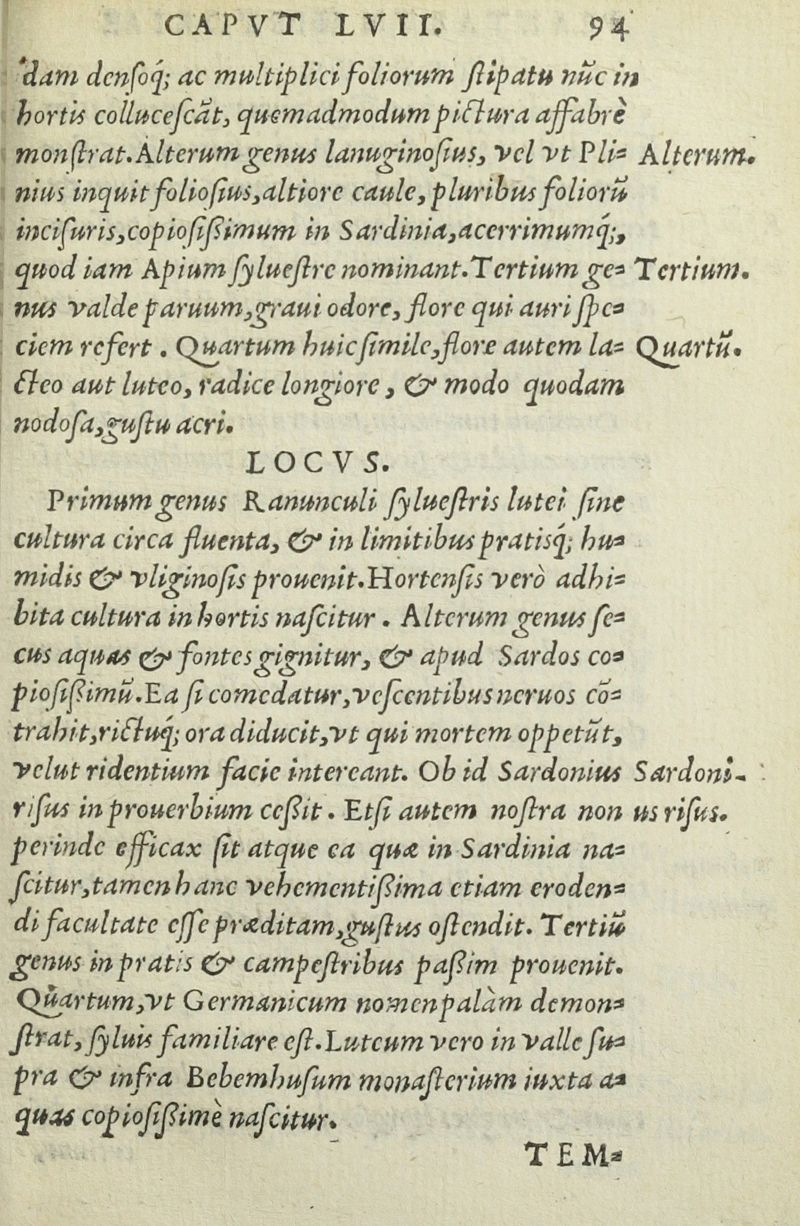 CAPVT LVII. 94
dam densoq́; ac multiplici foliorum stipatu nūc in
hortis collucescāt, quemadmodum pictura affabrè
monstrat. Alterum genus lanuginosius, vel vt Pli- Alterum.
nius inquit foliosius, altiore caule, pluribus foliorū
incisuris, copiosißimum in Sardinia, acerrimumq́;,
quod iam Apium syluestre nominant. Tertium ge- Tertium.
nus valde paruum, graui odore, flore qui auri spe-
ciem refert. Quartum huic simile, flore autem la- Quartū.
cteo aut luteo, radice longiore, & modo quodam
nodosa, gustu acri.
LOCVS.
Primum genus Ranunculi syluestris lutei sine
cultura circa fluenta, & in limitibus pratisq́; hu-
midis & vliginosis prouenit. Hortensis verò adhi-
bita cultura in hortis nascitur. Alterum genus se-
cus aquas & fontes gignitur, & apud Sardos co-
piosißimū. Ea si comedatur, vescentibus neruos cō-
trahit, rictuq́; ora diducit, vt qui mortem oppetūt,
velut ridentium facie intereant. Ob id Sardonius Sardoni-
risus in prouerbium ceßit. Etsi autem nostra non us risus.
perinde efficax sit atque ea quæ in Sardinia na-
scitur, tamen hanc vehementißima etiam eroden-
di facultate esse præditam, gustus ostendit. Tertiū
genus in pratis & campestribus paßim prouenit.
Quartum, vt Germanicum nomen palàm demon-
strat, syluis familiare est. Luteum vero in valle su-
pra & infra Bebemhusum monasterium iuxta a-
quas copiosißimè nascitur.
TEM-